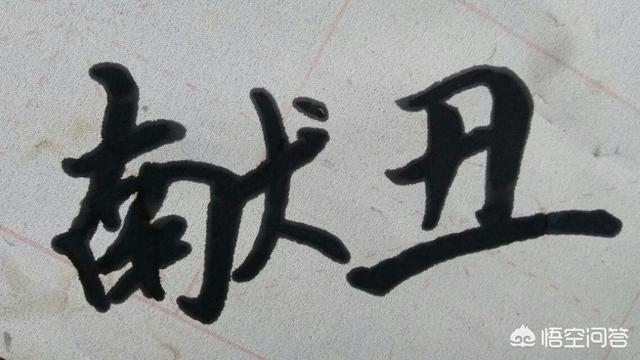 献丑
悟空问答